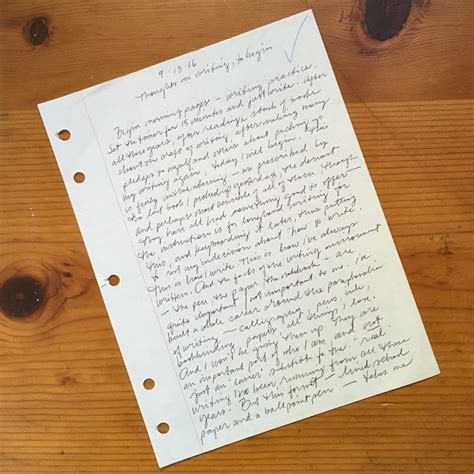 9·13·16
Thoughts on writing, to begin
Begin morning pages – writing practice.
Set the timer for 15 minutes and just write. After
all these years, after reading a stack of books
about the craft of writing, after making many
pledges to myself and others about picking up
my writing again, today I will begin. This
is freely intimidating – as prescribed by
the last book I picked up yesterday, the
and perhaps most sensible of all of them, though
they have all had something good to offer –
the instruction is for longhand writing for
this, and keyboarding it later, thus putting
to rest my indecision about "how" to write.
This is how I write. This is how I've always
written. And the facts of the writing environment
– the pen, the paper, the notebook – are
quite important, just important to me. i.e.
built a whole career around the paraphernalia
of writing – calligraphy, pens, inks,
bookbinding, papers, all things I love.
And I won't be giving them up. They are
an important part of who I am, and not
just an 'career' substitute to the 'real'
writing I've been running from all these
years! But this format – lined school
paper and a ballpoint pen – takes me